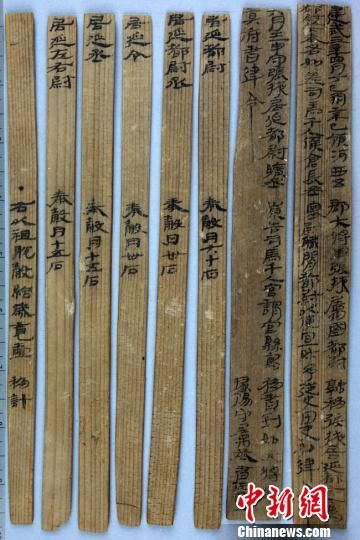 建武三年四月丁巳朔辛巳領河西五郡大將軍張掖屬國都尉融移張掖居延都尉
都尉以下奉各如差司馬千人候倉長丞塞尉職閒都尉以便宜財予從史田吏如律
六月壬申守張掖居延都尉曠丞崇告司馬千人官謂官縣寫移書到如大將軍
莫府書律令
掾陽守屬恭書佐
居延都尉
奉穀月六十石
居延都尉丞
奉穀月卅石
居延令
奉穀月卅石
居延丞
奉穀月十五石
居延左右尉
奉穀月十五石
●右以祖脫穀給歲竟壹移計
中新网
www.chinanews.com